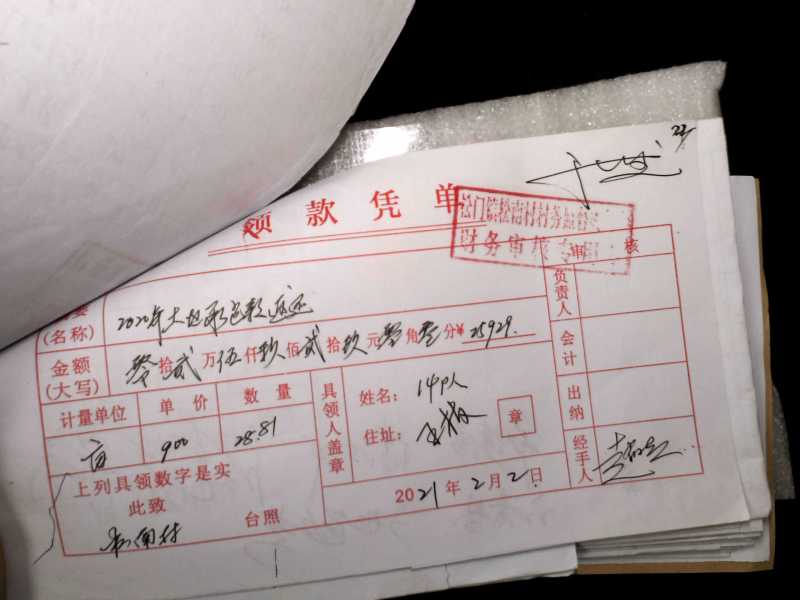 22/
领款凭单
松门镇松南村村务监督
财务审核专用
审核
(名称) 2020年大起承包款返还
金额(大写) 零拾贰万伍仟玖佰贰拾玖元零角零分¥25929.
计量单位 单价 数量
亩 900 28.81
具领人盖章
姓名: 14户人
住址:
章
负责人
会计
出纳
经手人
上列具领数字是实
此致
松南村 台照
2021年2月2日